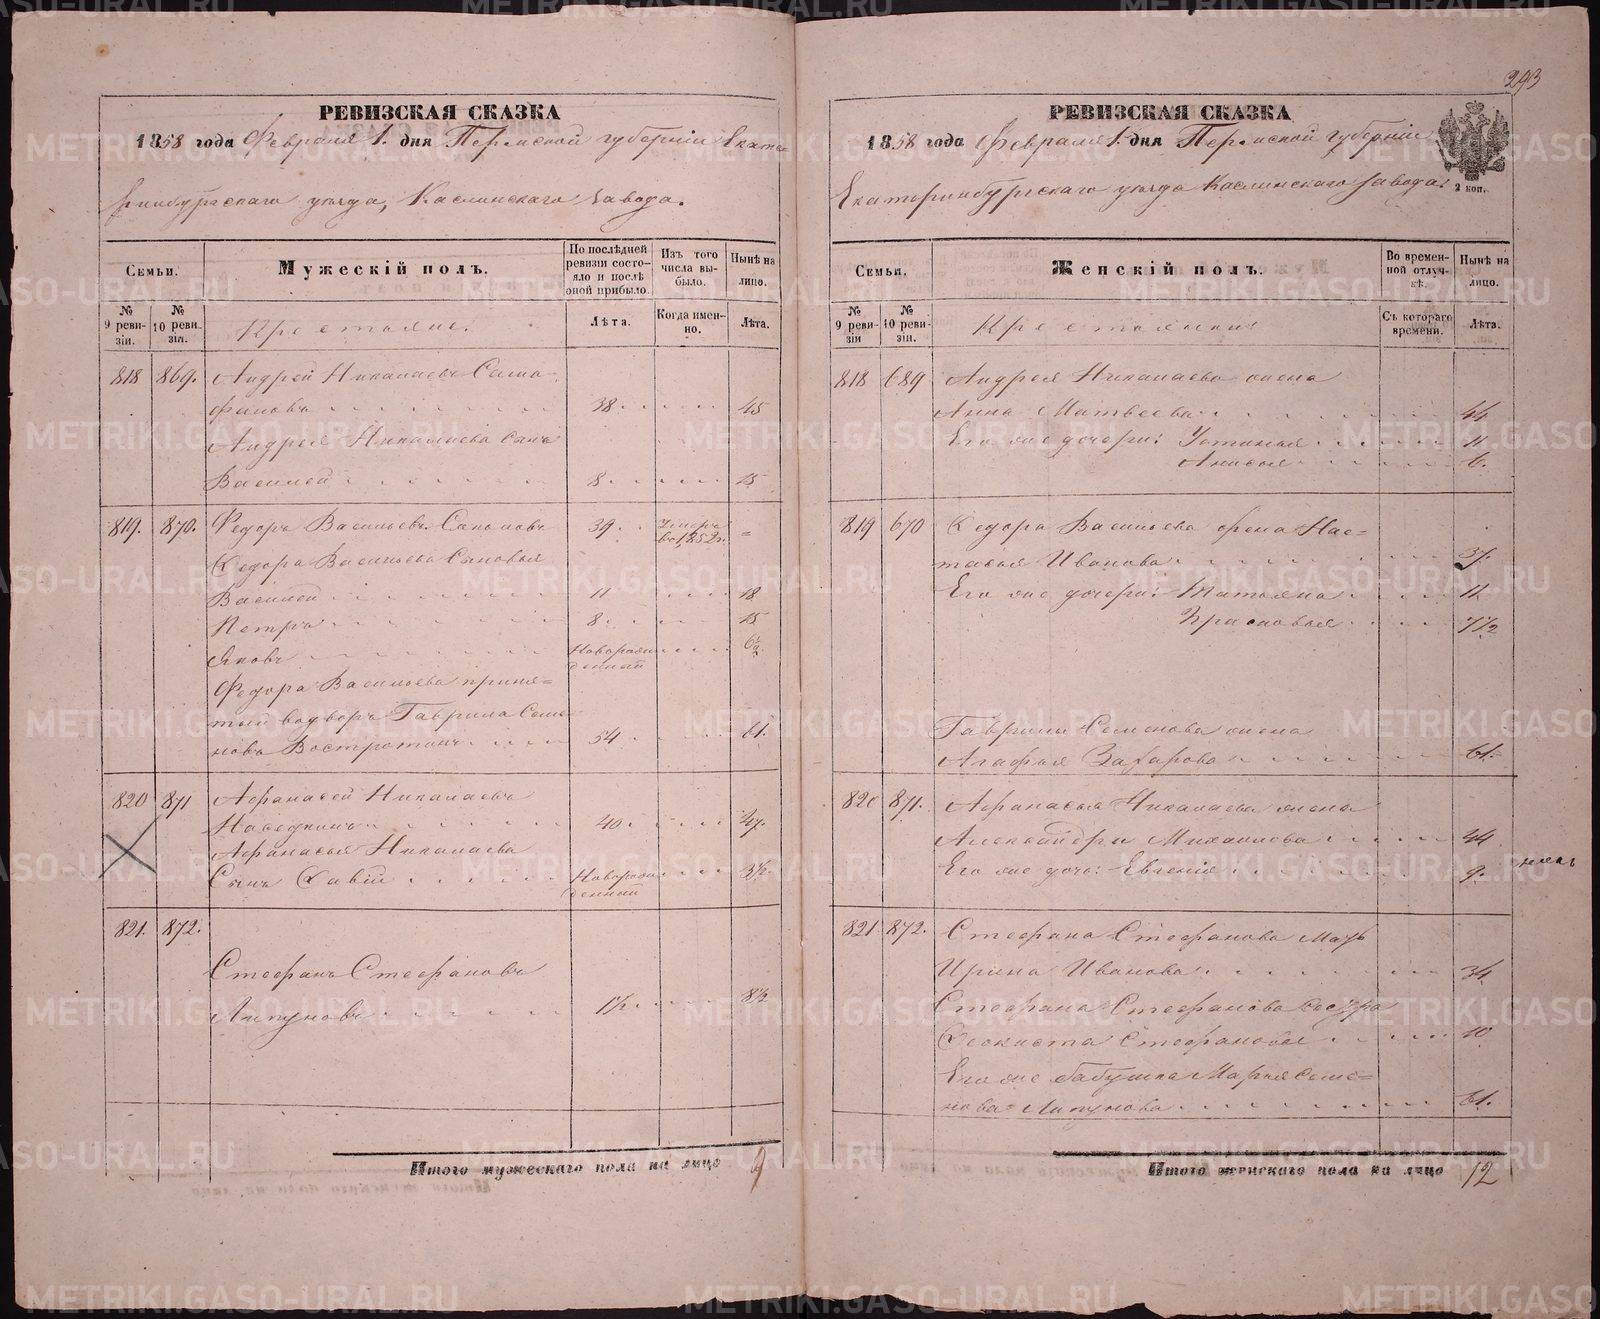 293
РЕВИЗСКАЯ СКАЗКА
1858 года Февраля 1. дня Пермской губерніи Екате=
ринбургскаго уѣзда, Каслинскаго завода.
Семьи.
Мужескій полъ.
По послѣдней ревизіи состояло и послѣ оной прибыло.
Изъ того числа выбыло.
Нынѣ на лицо.
№ 9 ревизіи.
№ 10 ревизіи.
Крестьяне.
Лѣта.
Когда именно.
Лѣта.
818 869. Андрей Николаевъ
38 45
Андрея Николаева сынъ
Василей 8 15
819. 870. Федоръ Васильевъ 39 Умеръ въ 1852 г. =
Федора Васильева сыновья
Василей 11 18
Петръ 8 15
Яковъ Новорожденный 6½
Федора Васильева приня=
тый во дворъ Гаврила Семе=
новъ Востротинъ 54 61.
820 871 Афанасей Николаевъ
Наседкинъ 40 47.
Афанасья Николаева
Сынъ Савій Новорожденный 3½
821. 872.
Стефанъ Стефановъ
Липуновъ 1½ 8½
Итого мужескаго пола на лицо 9
РЕВИЗСКАЯ СКАЗКА
1858 года Февраля 1. дня Пермской губерніи
Екатеринбургскаго уѣзда Каслинскаго завода.
2 коп.
Семьи.
Женскій полъ.
Во временной отлучкѣ.
Нынѣ на лицо.
№ 9 ревизіи
№ 10 ревизіи.
Крестьянки
Съ котораго времени.
Лѣта.
818 689 Андрея Николаева жена
Анна Матвеева 44
Его же дочери: Устинья 11
Анисья 6.
819 670 Федора Васильева жена Нас=
тасья Иванова 37.
Его же дочери: Татьяна 11
Прасковья 7½
Гаврилы Семенова жена
Агафья Захарова 61.
820 871. Афанасья Николаева жена
Александра Михайлова 44
Его же дочь: Евгенія 9.
821 872. Стефана Стефанова мать
Ирина Иванова 34
Стефана Стефанова сестра
Феокиста Стефанова 10
Его же бабушка Марья Семе=
нова Липунова 61.
Итого женскаго пола на лицо 12
METRIKI.GASO-URAL.RU